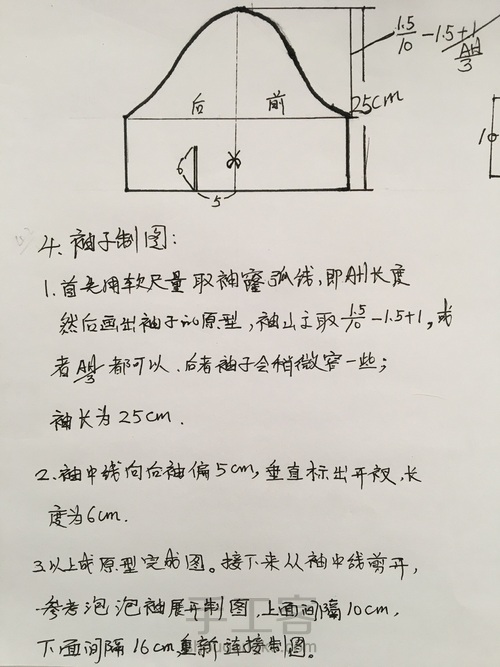 1.5/10 - 1.5 + 1
AH/3
后 前 25cm
10
6
5
4. 袖子制图:
1. 首先用软尺量取袖窿弧线,即AH长度
然后画出袖子的原型,袖山主取1.5/10 - 1.5 + 1。或
者AH/3都可以、后者袖子会稍微窄一些;
袖长为25cm.
2. 袖中线向后袖偏5cm,垂直标出开衩,长
度为6cm.
3. 以上或原型完成图。接下来从袖中线剪开,
参考泡泡袖展开制图,上面间隔10cm,
下面间隔16cm重新连接制图。
手工客